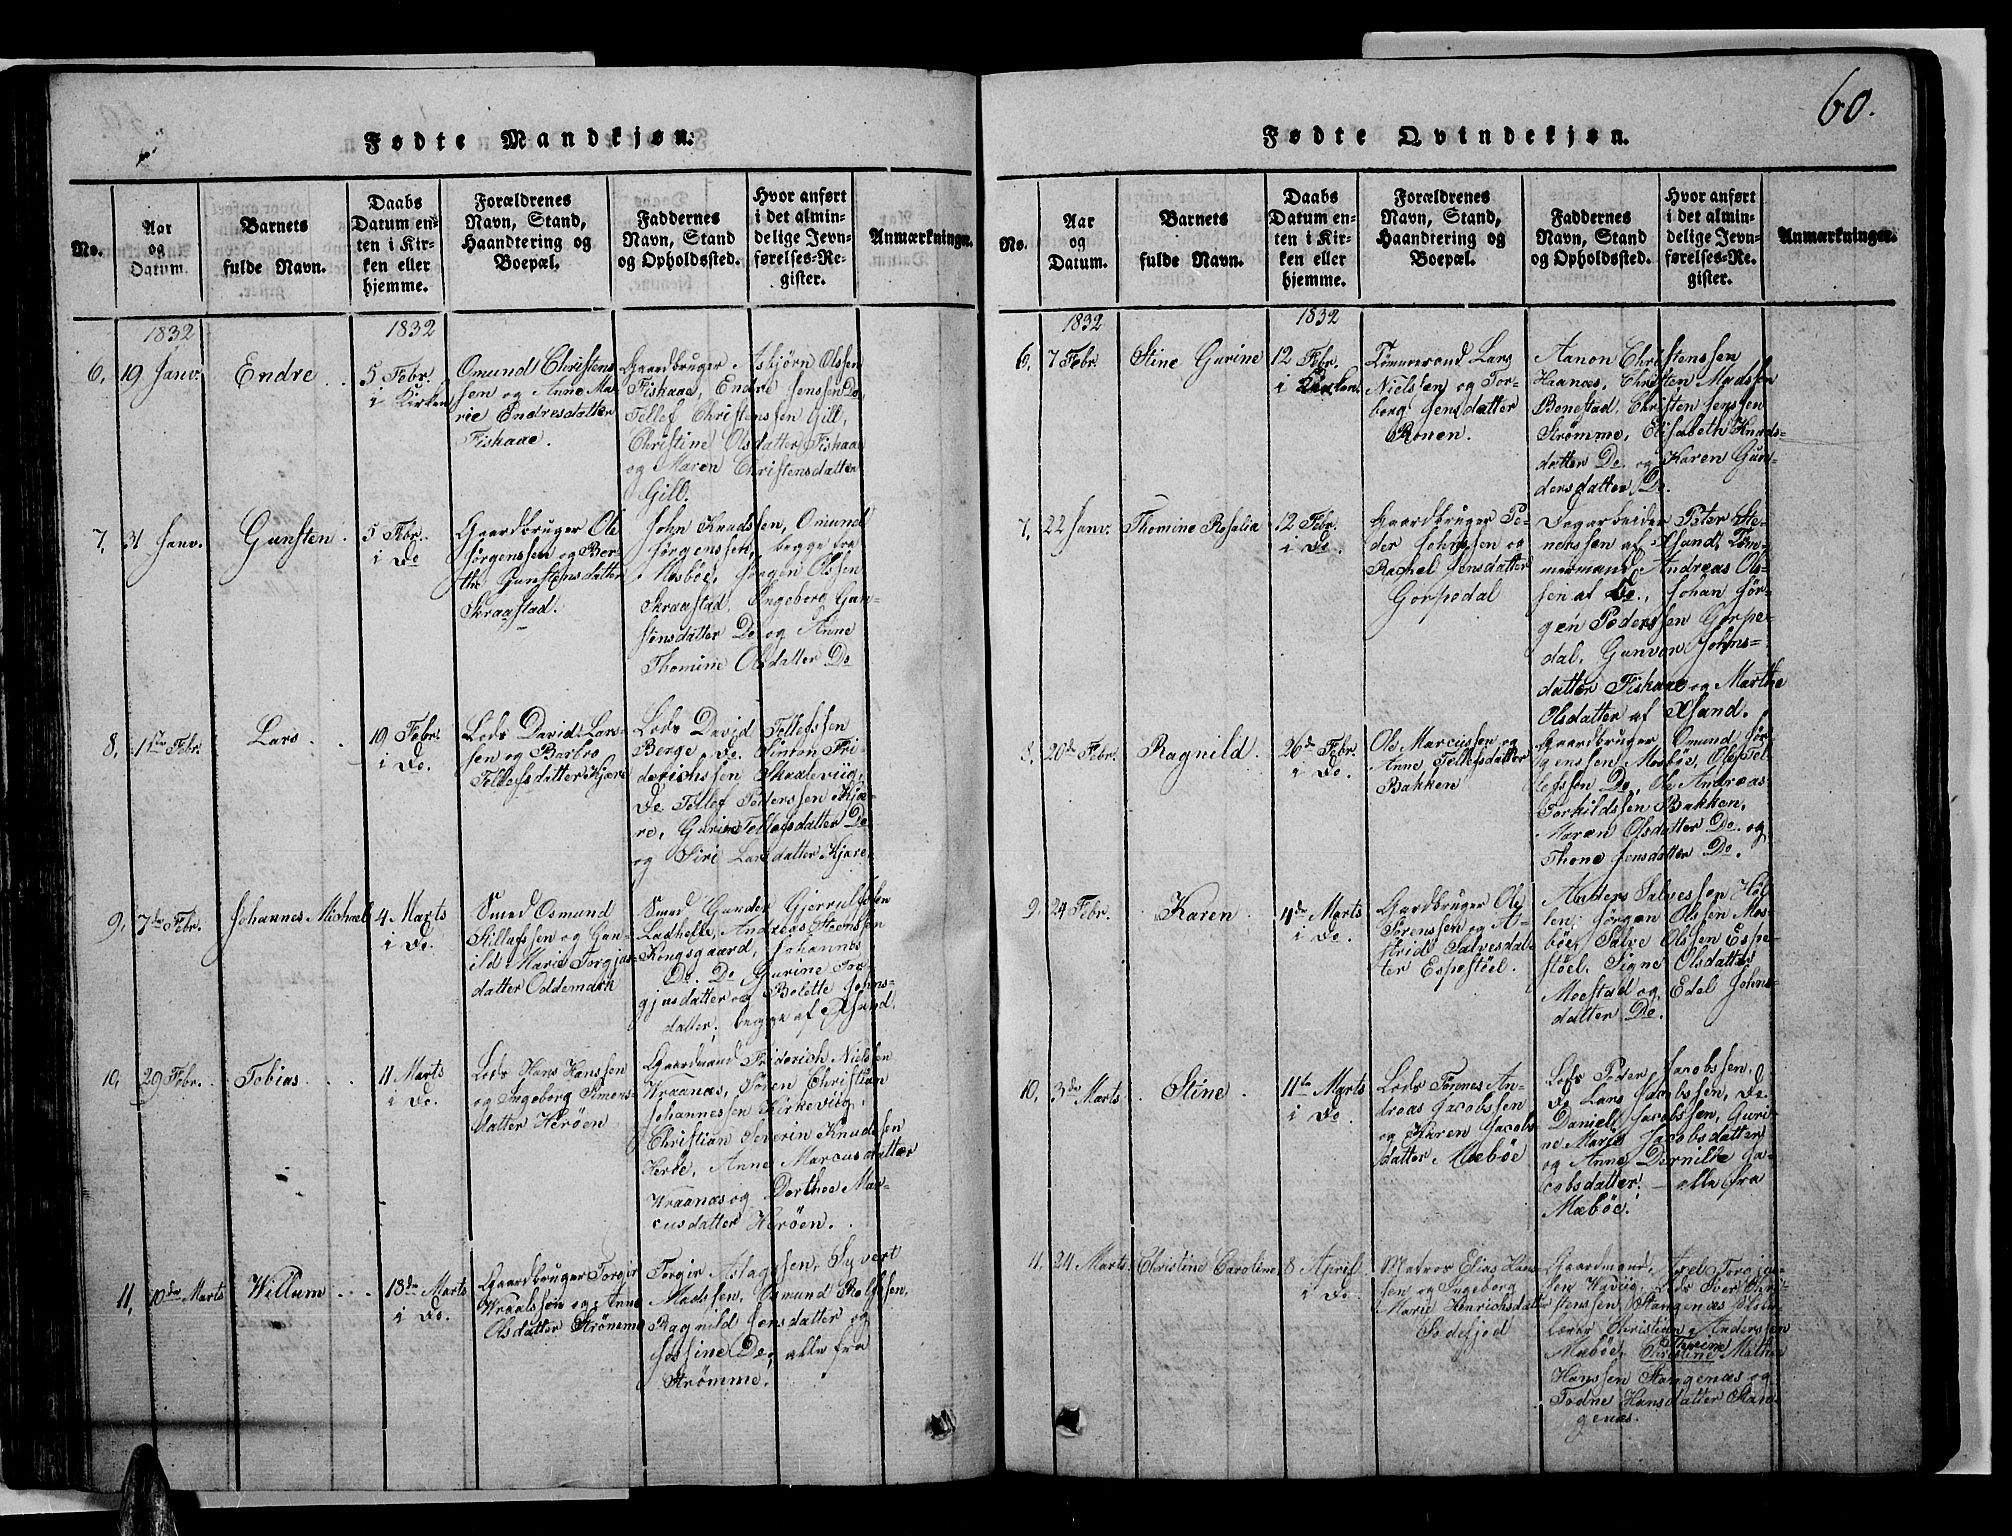 60.
Fødte Mandkjøn.
No.
Aar
og
Datum.
Barnets
fulde Navn.
Daabs
Datum en-
ten i Kir-
ken eller
hjemme.
Forældrenes
Navn, Stand,
Haandtering og
Boepæl.
Faddernes
Navn, Stand
og Opholdssted.
Hvor anført
i det almin-
delige Jevn-
førelses-Re-
gister.
Anmærkninger.
1832
1832
6, 19 Janv.
Endre
5 Febr.
i Kirken
Omund Christens
sen og Anne Ma
rie Endresdatter
Fiskaae.
Gaardbruger Asbjørn Olssen
Fiskaae, Endre Jenssen Do,
Tellef Christenssen Gill,
Christine Olsdatter Fiskaae
og Maren Christensdatter
Gill.
7, 31 Janv.
Gunsten
5 Febr.
i Do
Gaardbruger Ole
Jørgenssen og Ber
the Gunstensdatter
Skraastad.
John Knudssen, Omund
Jørgenssen, begge fra
Mosbøe, Jørgen Olssen
Skraastad, Ingeborg Gun-
stensdatter Do og Anne
Thomine Olsdatter Do
8, 1ste Febr.
Lars
19 Febr.
i Do.
Lods David Lars-
sen og Barbro
Tellefsdatter Kjære
Lods David Tellefssen
Berge, Do. Simon Fri
derichssen Skaaleviig,
Do Tellef Pederssen Kjæ-
re, Gurine Tellefsdatter Do
og Siri Larsdatter Kjære.
9, 7de Febr.
Johannes Michael
4 Marts
i Do.
Smed Osmund
Stillefssen og Gun-
ild Marie Torgjus-
datter Oddemark
Smed Gunder
Ladhelle, Andreas
Kongsgaard, Johannes
Do. Do, Gurine Tor
gjusdatter og Bolette Johns-
datter, begge af Xsand.
10, 29 Febr.
Tobias
11 Marts
i Do.
Lods Hans Hanssen
og Ingeborg Simons-
datter Herøen
Gaardmand Friderich Nielssen
Kraanæs, Søren Christian
Johannessen Kirkeviig,
Christian Severin Knudssen
Herøe, Anne Marcusdatter
Kraanæs og Dorthea Mar-
cusdatter Herøen.
11, 10de Marts
Willum
18de Marts
i Do.
Gaardbruger Torgir
Wraalssen og Anne
Olsdatter Strømme
Torgir Aslagssen, Syvert
Madssen, Osmund Rolfssen,
Ragnild Jensdatter og
Jossine Do, alle fra
Strømme.
Fødte Qvindekjøn.
No.
Aar
og
Datum.
Barnets
fulde Navn.
Daabs
Datum en-
ten i Kir-
ken eller
hjemme.
Forældrenes
Navn, Stand,
Haandtering og
Boepæl.
Faddernes
Navn, Stand
og Opholdssted.
Hvor anført
i det almin-
delige Jevn-
førelses-Re-
gister.
Anmærkninger.
1832
1832
6, 7 Febr.
Stine Gurine
12 Febr.
i Kirken
Tømmermand Lars
Nielssen og Tor-
borg Jensdatter
Ronen.
Aanon Christenssen
Haanæs, Christen Madssen
Bonestad, Christen Jenssen
Strømme, Elisabeth Knuds-
datter Do. og Karen Gun-
dersdatter Do.
7, 22 Janv.
Thomine Rosalia
12 Febr.
i Do.
Gaardbruger Pe-
der Johnssen og
Rachel Jensdatter
Gorpedal
Dagarbeider Peter Ste-
nenssen af Xsand, Tøm-
mermand Andreas Ols-
sen af Do., Johan Jør-
gen Pederssen Gorpe-
dal, Gunvor Johns-
datter Fiskaae og Marthe
Olsdatter af Xsand.
8, 20de Febr.
Ragnild
26de Febr.
i Do.
Ole Marcussen og
Anne Tellefsdatter
Bakken
Gaardbruger Omund Jør
genssen Mosbøe, Ole Tel-
lefssen Do, Ole Andreas
Torkildssen Bakken,
Maren Olsdatter Do. og
Thone Jensdatter Do.
9, 24 Febr.
Karen
4de Marts
i Do.
Gaardbruger Ole
Sørenssen og A-
strid Salvesdat-
ter Espestøel.
Anders Salvessen Høl-
len, Jørgen Olssen Mos-
bøe, Salve Olssen Espe-
støel, Signe Olsdatter
Moestad og Edel Johns-
datter Do.
10, 3de Marts
Stine
11te Marts
i Do.
Lods Tønnes An-
dreas Jacobssen
og Karen Jacobs
datter Mæbøe
Lods Peder Jacobssen,
Do Lars Jacobssen, Do
Daniel Jacobssen, Guri-
ne Marie Jacobsdatter
og Anne Pernille Ja-
cobsdatter. – alle fra
Mæbøe.
11, 24 Marts
Christine Caroline,
8 April
i Do.
Matros Elias Han-
sen og Ingeborg
Marie Henrichsdatter
Sodefjed
Gaardmand Axel Torgju-
sen Lods Iver Chri-
stenssen, Stangenæs
Christian Anderssen
Mæbøe, Christine
Hanssen Stangenæs og
Todne Hansdatter Stan-
genæs.